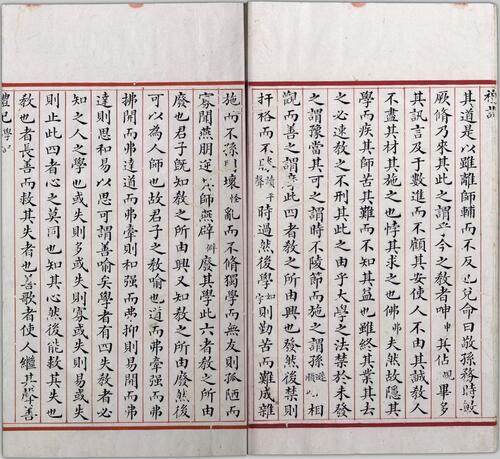 其道是以雖離師輔而不反也兌命曰敬孫務時敏
厥脩乃來其此之謂乎今之教者呻申其佔覘畢多
其訊言及于數進而不顧其安使人不由其誠教人
不盡其材其施之也悖其求之也佛弗夫然故隱其
學而疾其師苦其難而不知其益也雖終其業其去
之必速教之不刑其此之由乎大學之法禁於未發
之謂豫當其可之謂時不陵節而施之謂孫相
觀而善之謂摩此四者教之所由興也發然後禁則
扞格而不勝讀平聲時過然後學則勤苦而難成雜
施而不孫則壞怪亂而不脩獨學而無友則孤陋而
寡聞燕朋逆其師燕辟僻廢其學此六者教之所由
廢也君子既知教之所由興又知教之所由廢然後
可以為人師也故君子之教喻也道而弗牽強而弗
抑開而弗達道而弗牽則和強而弗抑則易開而弗
達則思和易以思可謂善喻矣學者有四失教者必
知之人之學也或失則多或失則寡或失則易或失
則止此四者心之莫同也知其心然後能救其失也
教也者長善而救其失者也善歌者使人繼其聲善
禮記學記